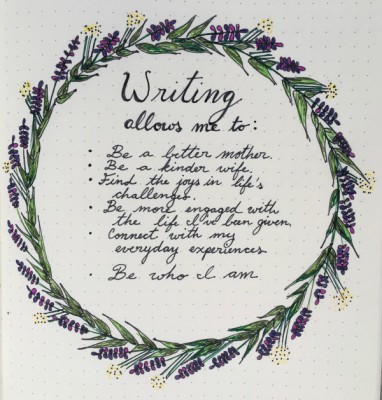 Writing
allows me to:
• Be a better mother.
• Be a kinder wife.
• Find the joys in life's
challenges.
• Be more engaged with
the life I've been given.
• Connect with my
everyday experiences
• Be who I am